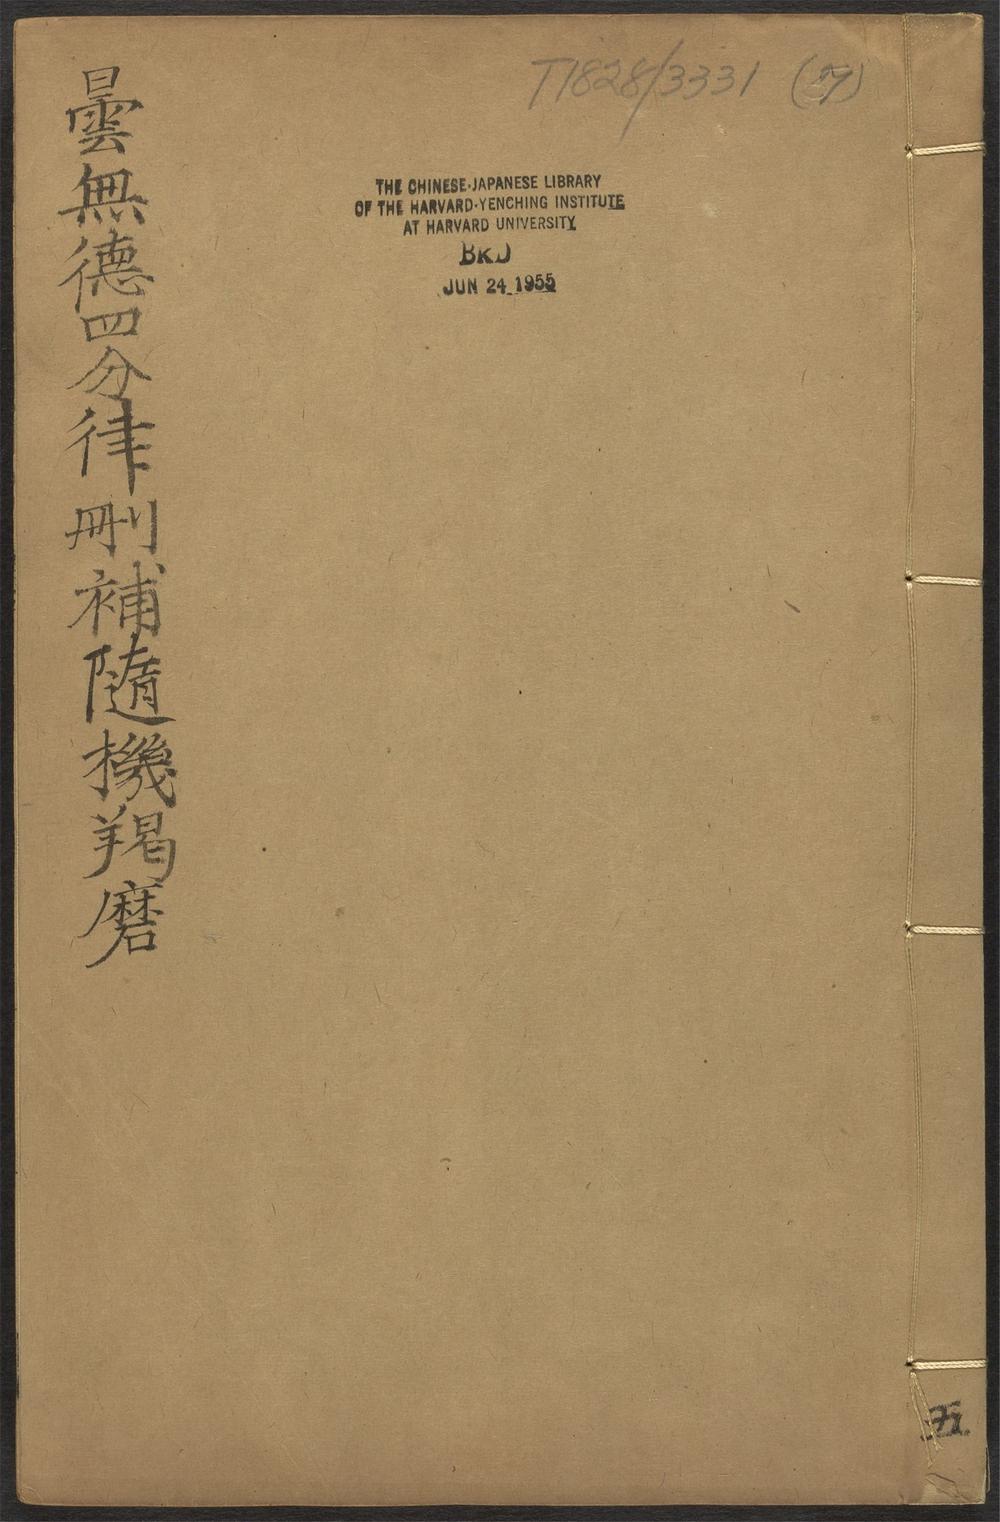 T1828/3331 (7)
THE CHINESE-JAPANESE LIBRARY
OF THE HARVARD-YENCHING INSTITUTE
AT HARVARD UNIVERSITY
JUN 24 1955
曇無德四分律刪補隨機羯磨
五